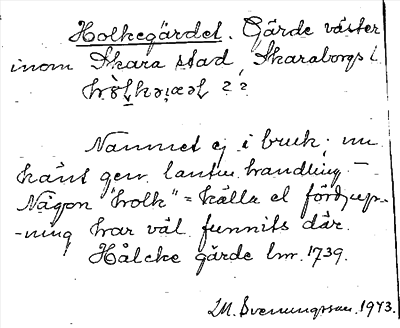 Holkegärdet. Gärde väster
inom Skara stad, Skaraborgs l.
??
Namnet ej i bruk; nu
känt gen. lantm. handling. —
Någon "holk" = källa el. fördjup-
-ning har väl funnits där.
Hålcke gärde lm. 1739.
Svenungsson. 1943.